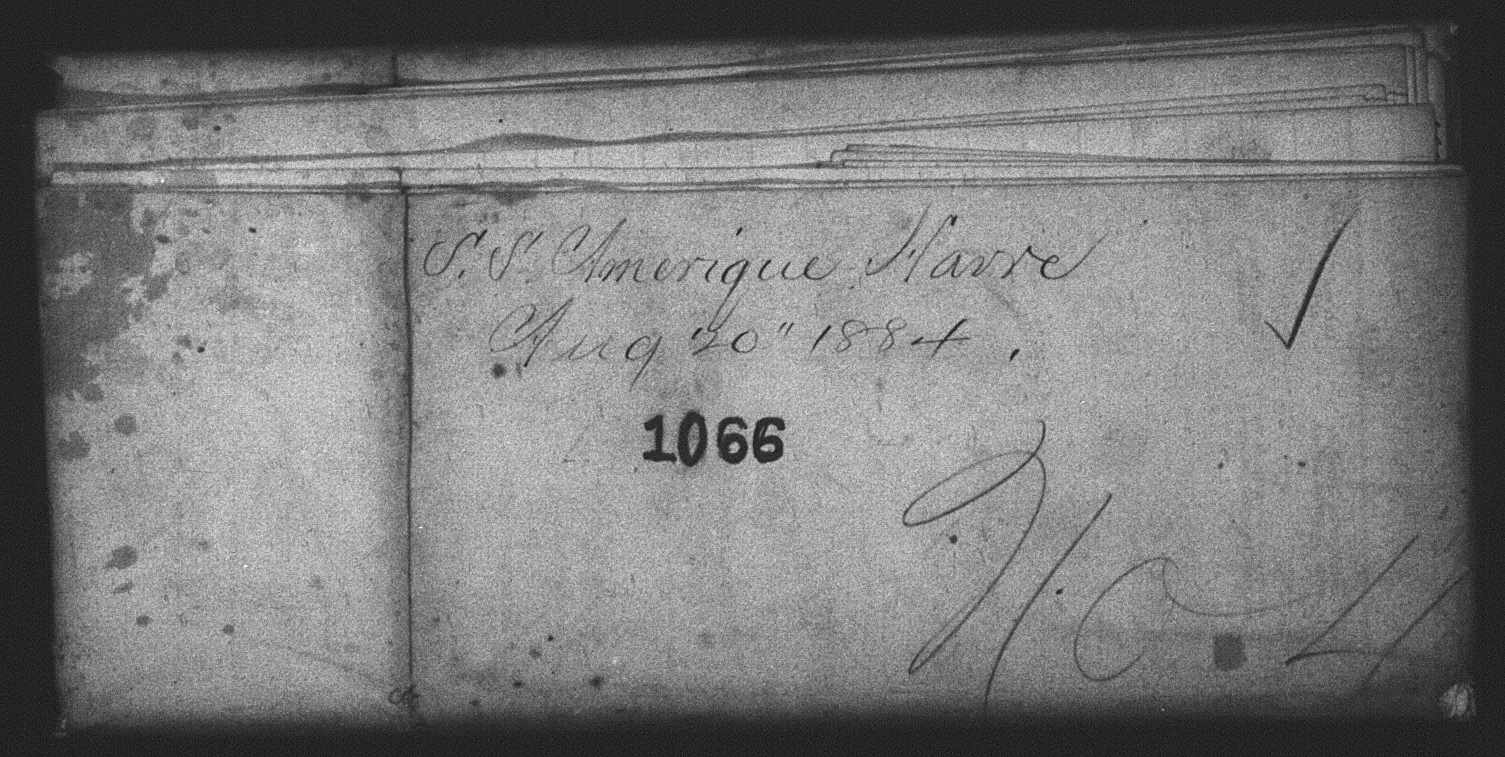 S. S. Amerique Havre
Aug 20" 1884.
1066